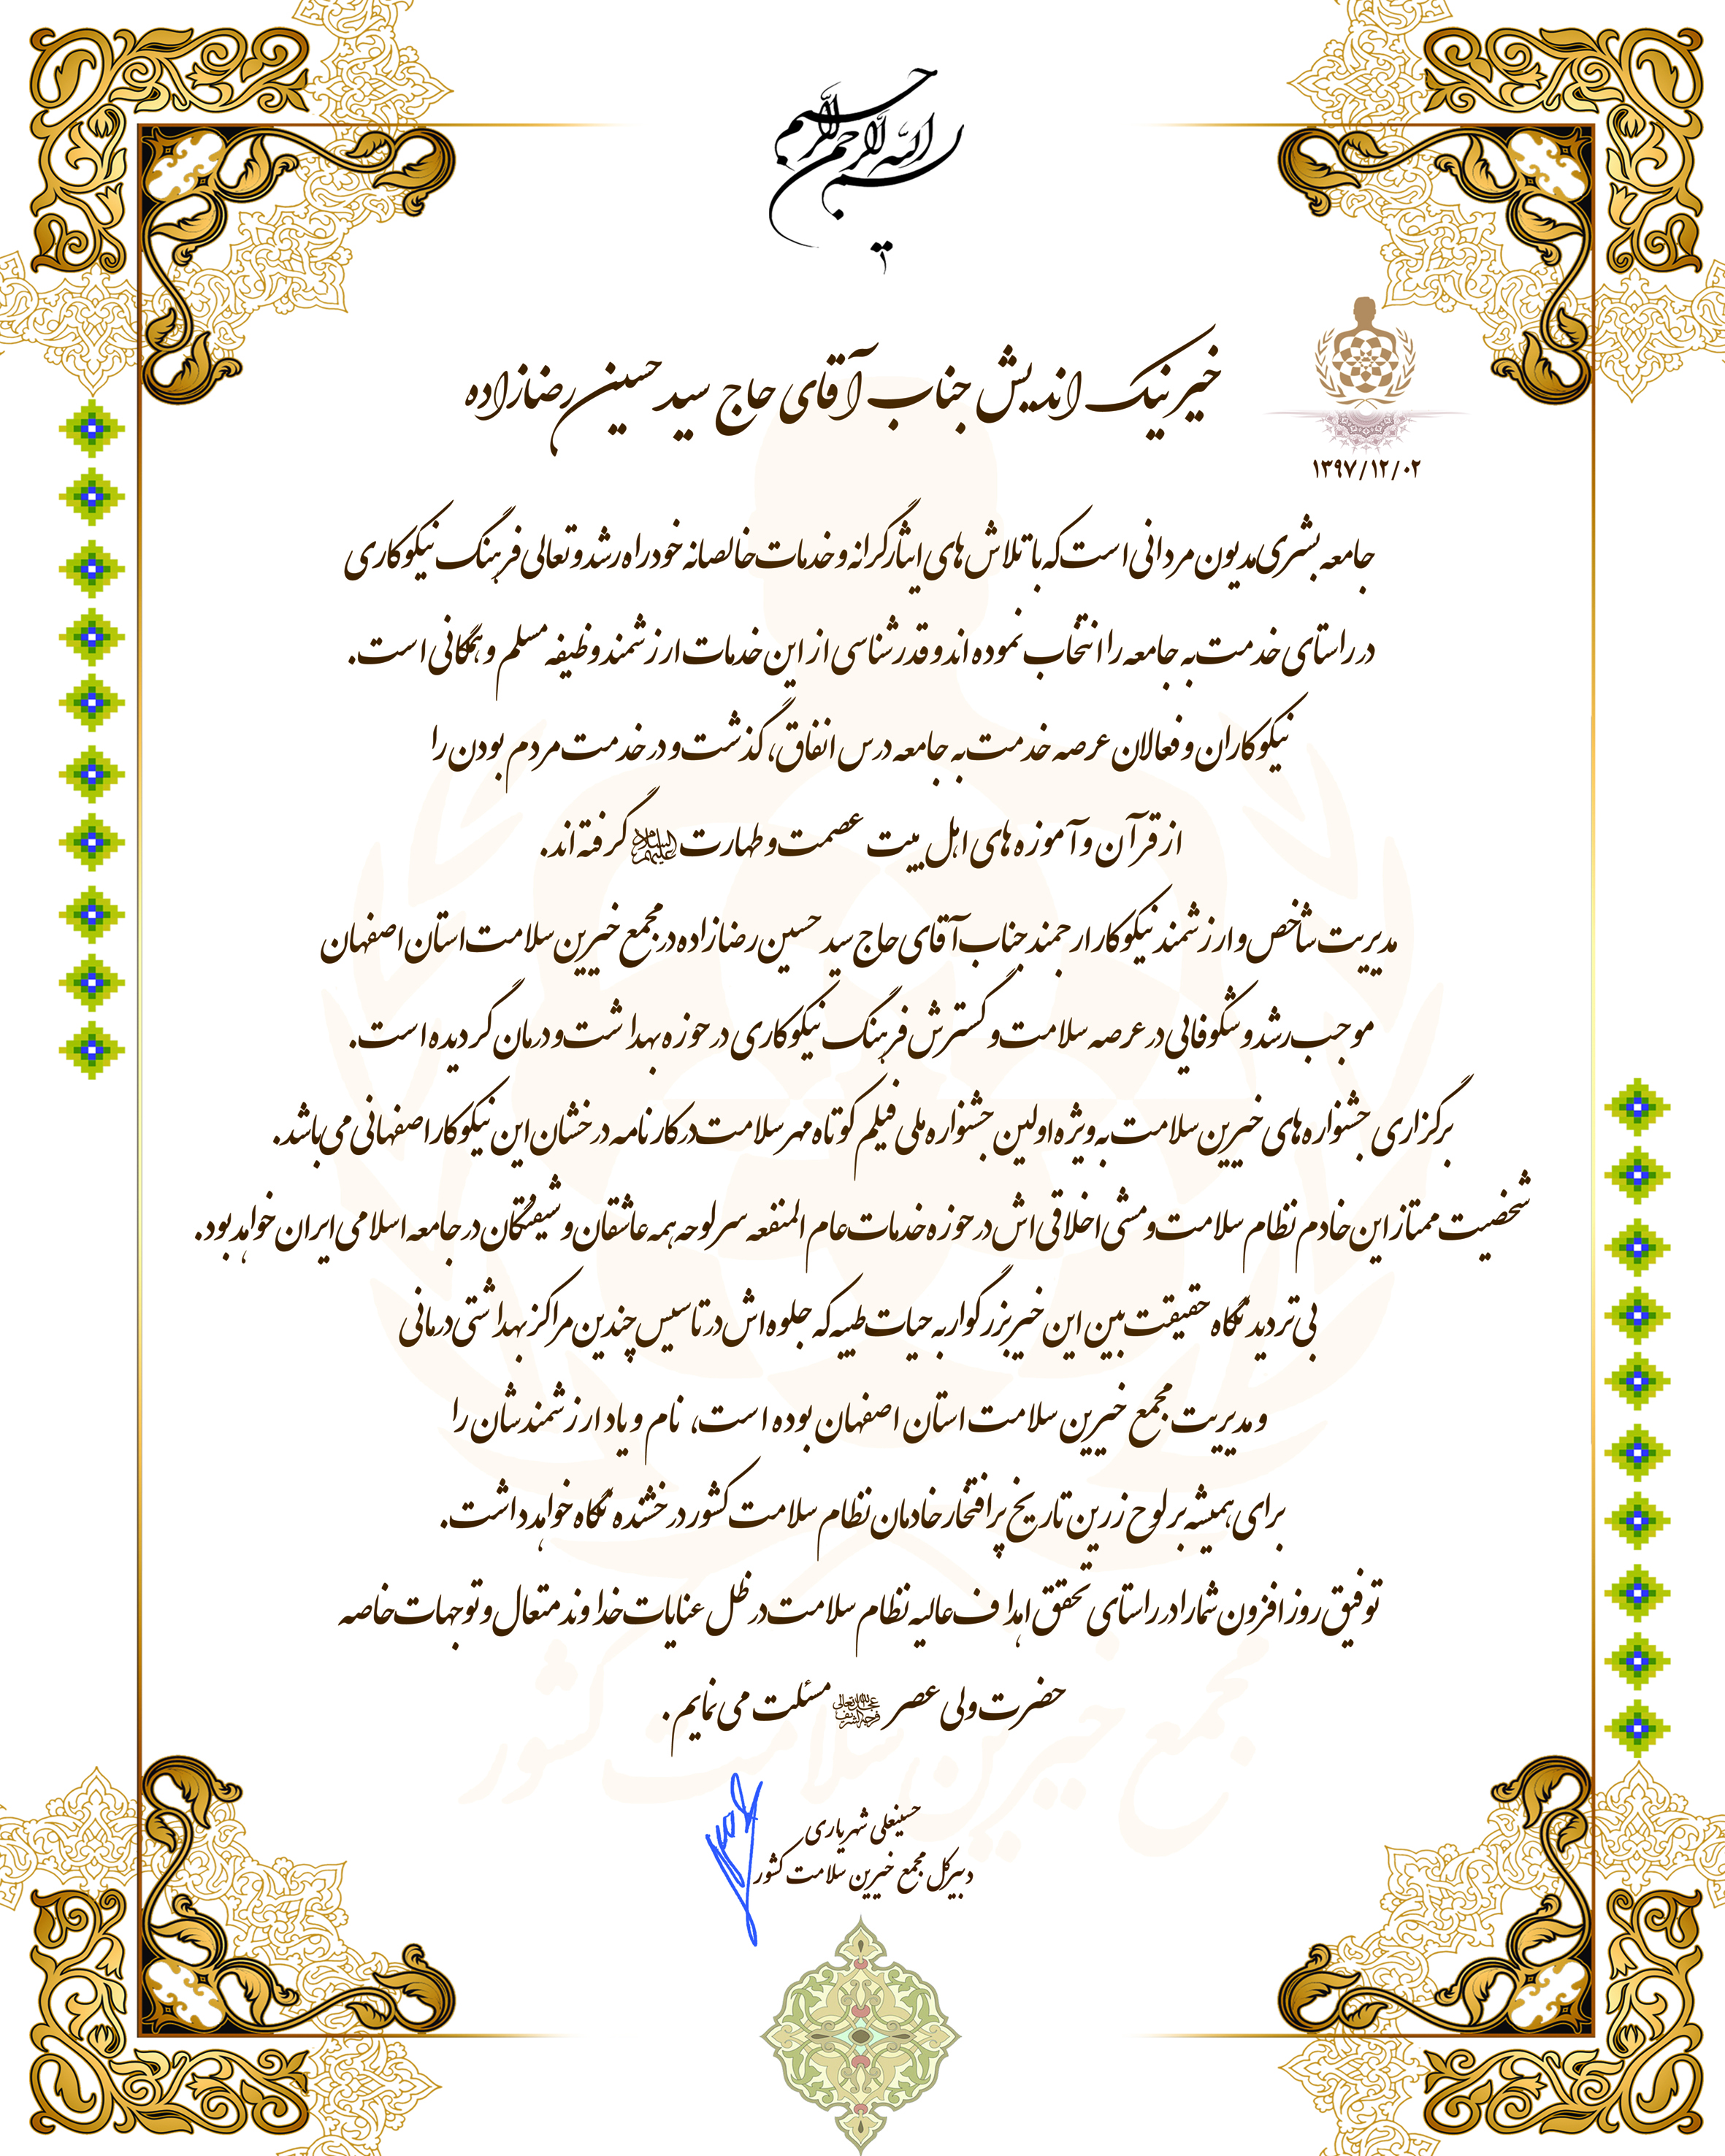 بسم الله الرحمن الرحیم
خیر نیک اندیش جناب آقای حاج سید حسین رضازاده
۱۳۹۷/۱۲/۰۲
جامعه بشری مدیون مردانی است که با تلاش های ایثارگرانه و خدمات خالصانه خود راه رشد و تعالی فرهنگ نیکوکاری
در راستای خدمت به جامعه را انتخاب نموده اند و قدرشناسی از این خدمات ارزشمند وظیفه مسلم و همگانی است.
نیکوکاران و فعالان عرصه خدمت به جامعه درس انفاق، گذشت و در خدمت مردم بودن را
از قرآن و آموزه های اهل بیت عصمت و طهارت علیهم السلام گرفته اند.
مدیریت شاخص و ارزشمند نیکوکار ارجمند جناب آقای حاج سید حسین رضازاده در مجمع خیرین سلامت استان اصفهان
موجب رشد و شکوفایی در عرصه سلامت و گسترش فرهنگ نیکوکاری در حوزه بهداشت و درمان گردیده است.
برگزاری جشنواره های خیرین سلامت به ویژه اولین جشنواره ملی فیلم کوتاه مهر سلامت در کارنامه درخشان این نیکوکار اصفهانی می باشد.
شخصیت ممتاز این خادم نظام سلامت و مشی اخلاقی اش در حوزه خدمات عام المنفعه سرلوحه همه عاشقان و شیفتگان در جامعه اسلامی ایران خواهد بود.
بی تردید نگاه حقیقت بین این خیر بزرگوار به حیات طیبه که جلوه اش در تاسیس چندین مراکز بهداشتی درمانی
و مدیریت مجمع خیرین سلامت استان اصفهان بوده است، نام و یاد ارزشمندشان را
برای همیشه بر لوح زرین تاریخ پر افتخار خادمان نظام سلامت کشور درخشنده نگاه خواهد داشت.
توفیق روز افزون شما را در راستای تحقق اهداف عالیه نظام سلامت در ظل عنایات خداوند متعال و توجهات خاصه
حضرت ولی عصر عجل الله تعالی فرجه الشریف مسئلت می نمایم.
مجمع خیرین سلامت کشور
حسینعلی شهریاری
دبیر کل مجمع خیرین سلامت کشور